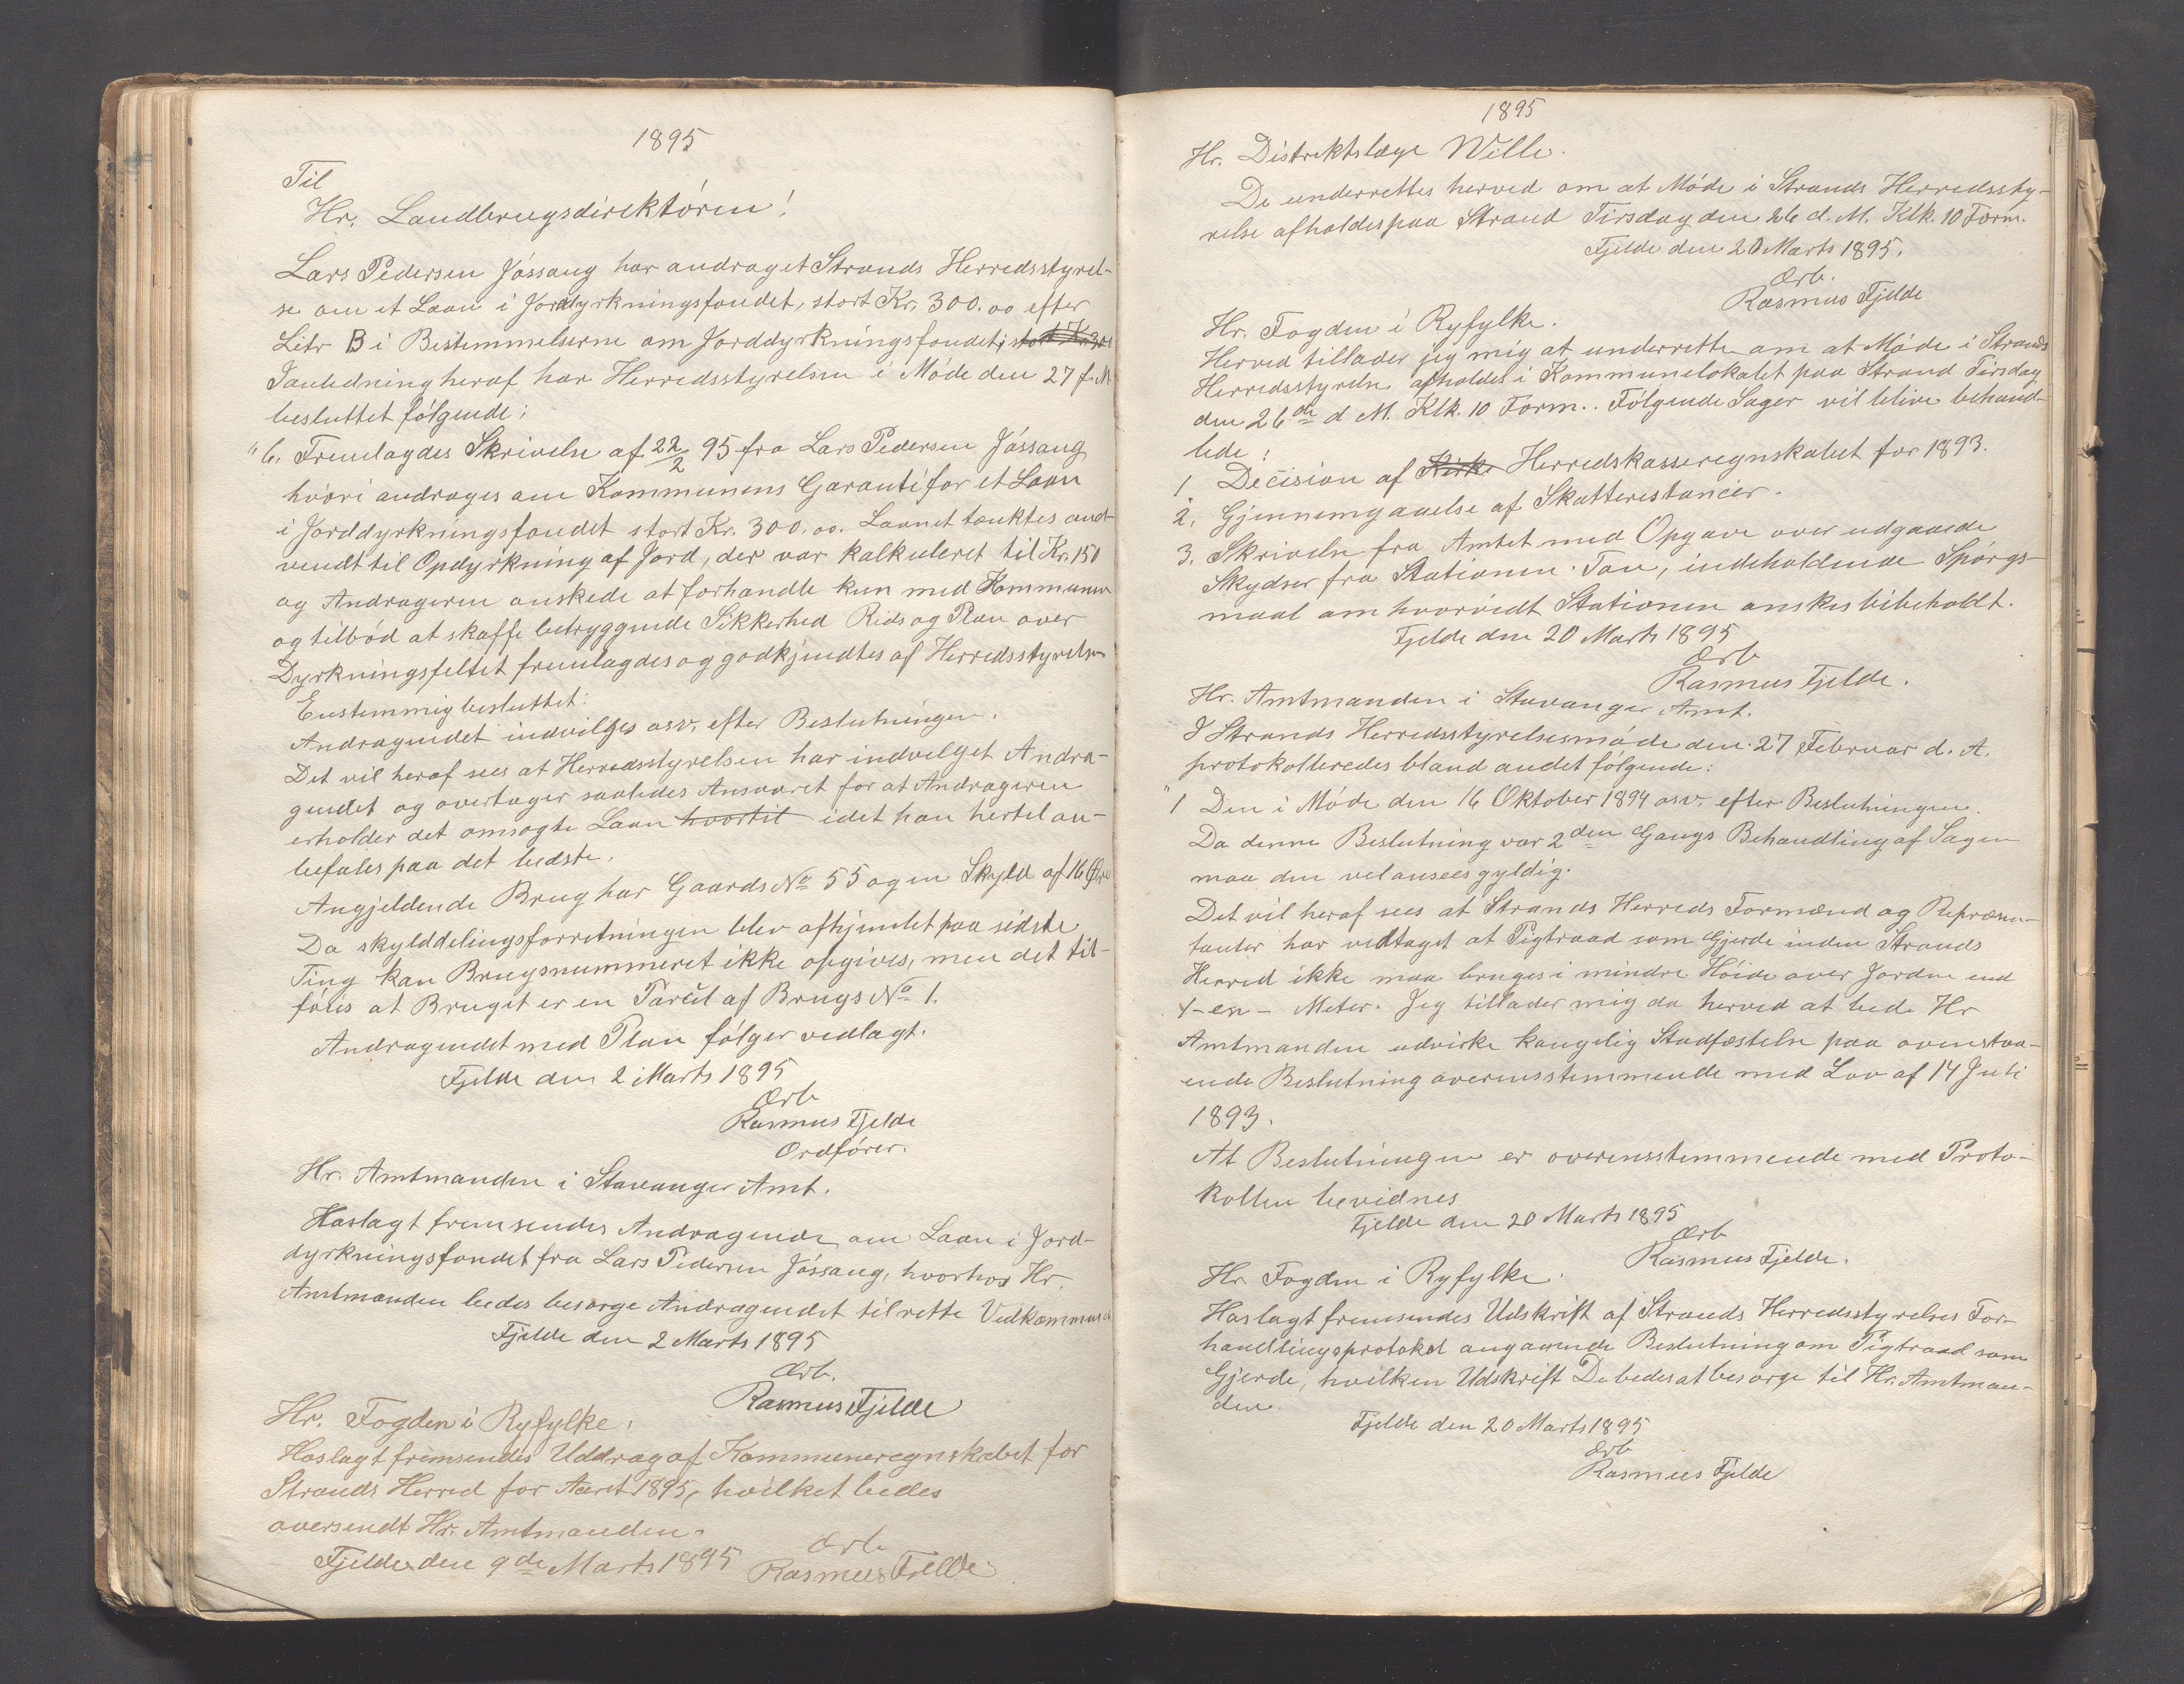 1895
Til
Hr. Landbrugsdirektören!
Lars Pedersen Jössang har andraget Strands Herredsstyrel-
se om et Laan i Jorddyrkningsfondet, stort Kr. 300.00 efter
Litr B i Bestemmelserne om Jorddyrkningsfondet, stort Kr. 300
I anledning heraf har Herredsstyrelsen i Möde den 27 f. M
besluttet fölgende:
"6. Fremlagdes Skrivelse af 22/2 95 fra Lars Pedersen Jössang
hvori andrages om Kommunens Garanti for et Laan
i Jorddyrkningsfondet stort Kr. 300.00. Laanet tænktes and-
vendt til Opdyrkning af Jord, der var kalkuleret til Kr. 150
og Andrageren ønskede at forhandle kun med Kommunen
og tilbød at skaffe betryggende Sikkerhed Rids og Plan over
Dyrkningsfeltet fremlagdes og godkjendtes af Herredsstyrelsen
Enstemmig besluttet:
Andragendet indvilges osv. efter Beslutningen.
Det vil heraf sees at Herredsstyrelsen har indvilget Andra-
gendet og overtager saaledes Ansvaret for at Andrageren
erholder det omsøgte Laan hvortil idet han hertil an-
befales paa det bedste.
Angjeldende Brug har Gaards No 55 og en Skyld af 16 Øre
Da skylddelingsforretningen blev afhjemlet paa sidste
Ting kan Brugsnummeret ikke opgives, men det til-
föies at Bruget er en Parcel af Brugs No 1.
Andragendet med Plan følger vedlagt.
Fjelde den 2 Marts 1895
Ærb
Rasmus Fjelde
Ordförer.
Hr. Amtmanden i Stavanger Amt.
Hoslagt fremsendes Andragende om Laan i Jord-
dyrkningsfondet fra Lars Pedersen Jössang, hvorhos Hr.
Amtmanden bedes besørge Andragendet til rette Vedkommende
Fjelde den 2 Marts 1895
Ærb.
Rasmus Fjelde
Hr. Fogden i Ryfylke.
Hoslagt fremsendes Uddrag af Kommuneregnskabet for
Strands Herred for Aaret 1895, hvilket bedes
oversendt Hr. Amtmanden.
Fjelde den 9de Marts 1895
Ærb
Rasmus Fjelde
1895
Hr. Distriktslæge Wille.
De underrettes herved om at Möde i Strands Herredssty-
relse afholdes paa Strand Tirsdag den 26 d. M. Klk. 10 Form.
Fjelde den 20 Marts 1895.
Ærb.
Rasmus Fjelde
Hr. Fogden i Ryfylke.
Herved tillader jeg mig at underrette om at Möde i Strands
Herredsstyrelse afholdes i Kommunelokalet paa Strand Tirsdag
den 26de d M. Klk. 10 Form.. Følgende Sager vil blive behand-
lede:
1 Decision af Kirke Herredskasseregnskabet for 1893.
2. Gjennemgaaelse af Skatterestancer.
3. Skrivelse fra Amtet med Opgave over udgaaede
Skydser fra Stationen Tau, indeholdende Spörgs-
maal om hvorvidt Stationen ønskes bibeholdt.
Fjelde den 20 Marts 1895
Ærb
Rasmus Fjelde.
Hr. Amtmanden i Stavanger Amt.
I Strands Herredsstyrelsesmöde den 27 Februar d. A.
protokolleredes bland andet følgende:
"1 Den i Möde den 16 Oktober 1894 osv. efter Beslutningen.
Da denne Beslutning var 2den Gangs Behandling af Sagen
maa den vel ansees gyldig.
Det vil heraf sees at Strands Herreds Formænd og Repræsen-
tanter har vedtaget at Pigtraad som Gjerde inden Strands
Herred ikke maa bruges i mindre Höide over Jorden end
1-en- Meter. Jeg tillader mig da herved at bede Hr
Amtmanden udvirke kongelig Stadfæstelse paa ovenstaa-
ende Beslutning overensstemmende med Lov af 14 Juli
1893.
At Beslutningen er overensstemmende med Proto-
kollen bevidnes
Fjelde den 20 Marts 1895
Ærb
Rasmus Fjelde.
Hr. Fogden i Ryfylke.
Hoslagt fremsendes Udskrift af Strands Herredsstyrelses For-
handlingsprotokol angaaende Beslutning om Pigtraad som
Gjerde, hvilken Udskrift De bedes at besørge til Hr. Amtman-
den.
Fjelde den 20 Marts 1895
Ærb
Rasmus Fjelde